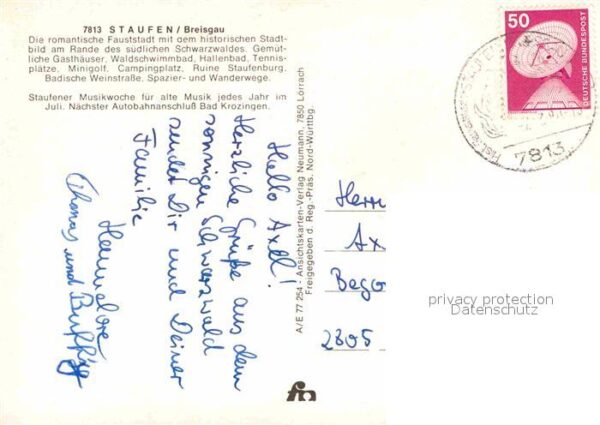 7813 STAUFEN / Breisgau
Die romantische Fauststadt mit dem historischen Stadt-
bild am Rande des südlichen Schwarzwaldes. Gemüt-
liche Gasthäuser, Waldschwimmbad, Hallenbad, Tennis-
plätze, Minigolf, Campingplatz, Ruine Staufenburg,
Badische Weinstraße, Spazier- und Wanderwege.
Staufener Musikwoche für alte Musik jedes Jahr im
Juli. Nächster Autobahnanschluß Bad Krozingen.
Hallo Axel!
Herzliche Grüße aus dem
sonnigen Schwarzwald
sendet Dir und Deiner
Familie
Hannelore
Thomas und
A/E 77 254 - Ansichtskarten-Verlag Neumann, 7850 Lörrach
Freigegeben d. Reg.-Präs. Nord-Württbg.
50
DEUTSCHE BUNDESPOST
7813
Herr
Ax
2805
privacy protection
Datenschutz